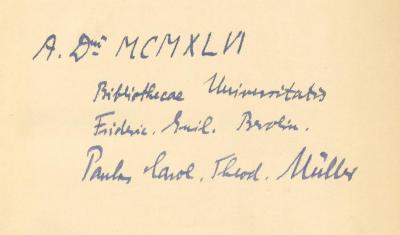 A. Dni MCMXLVI
Bibliothecae Universitatis
Frideric. Guil. Berolin.
Paulus Carol. Theod. Müller